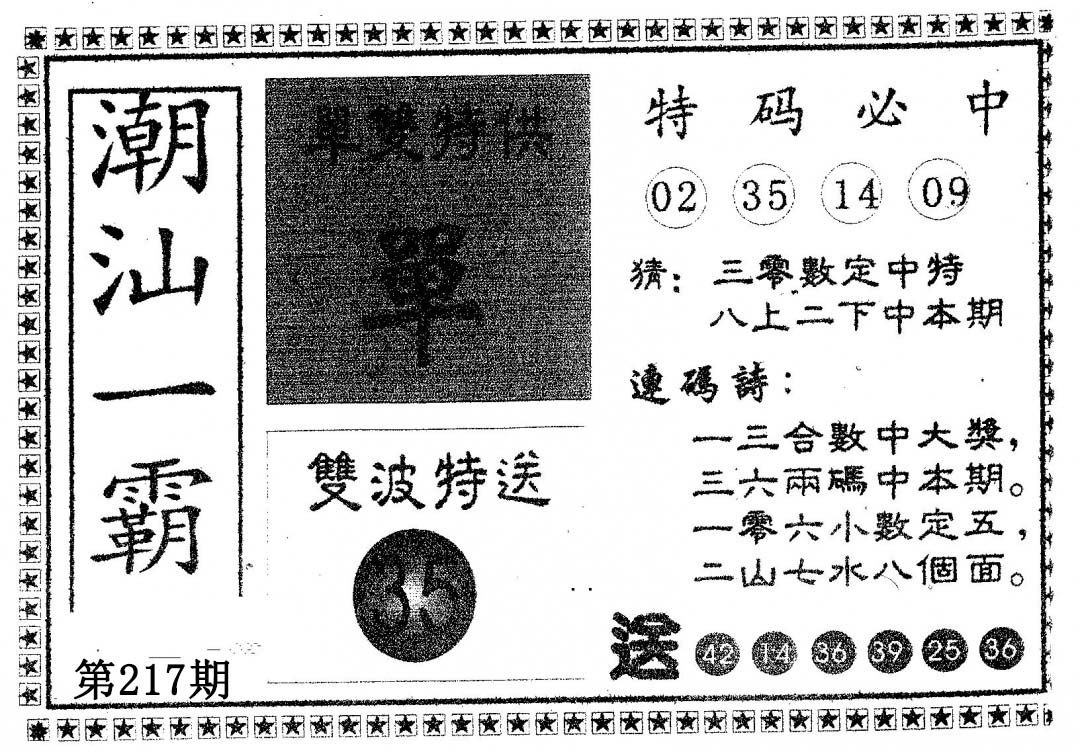 潮汕一霸
第217期
單雙特供
單
雙波特送
35
特码必中
02 35 14 09
猜：三零數定中特
八上二下中本期
連碼詩：
一三合數中大獎，
三六兩碼中本期。
一零六小數定五，
二山七水八個面。
送 42 14 36 39 25 36